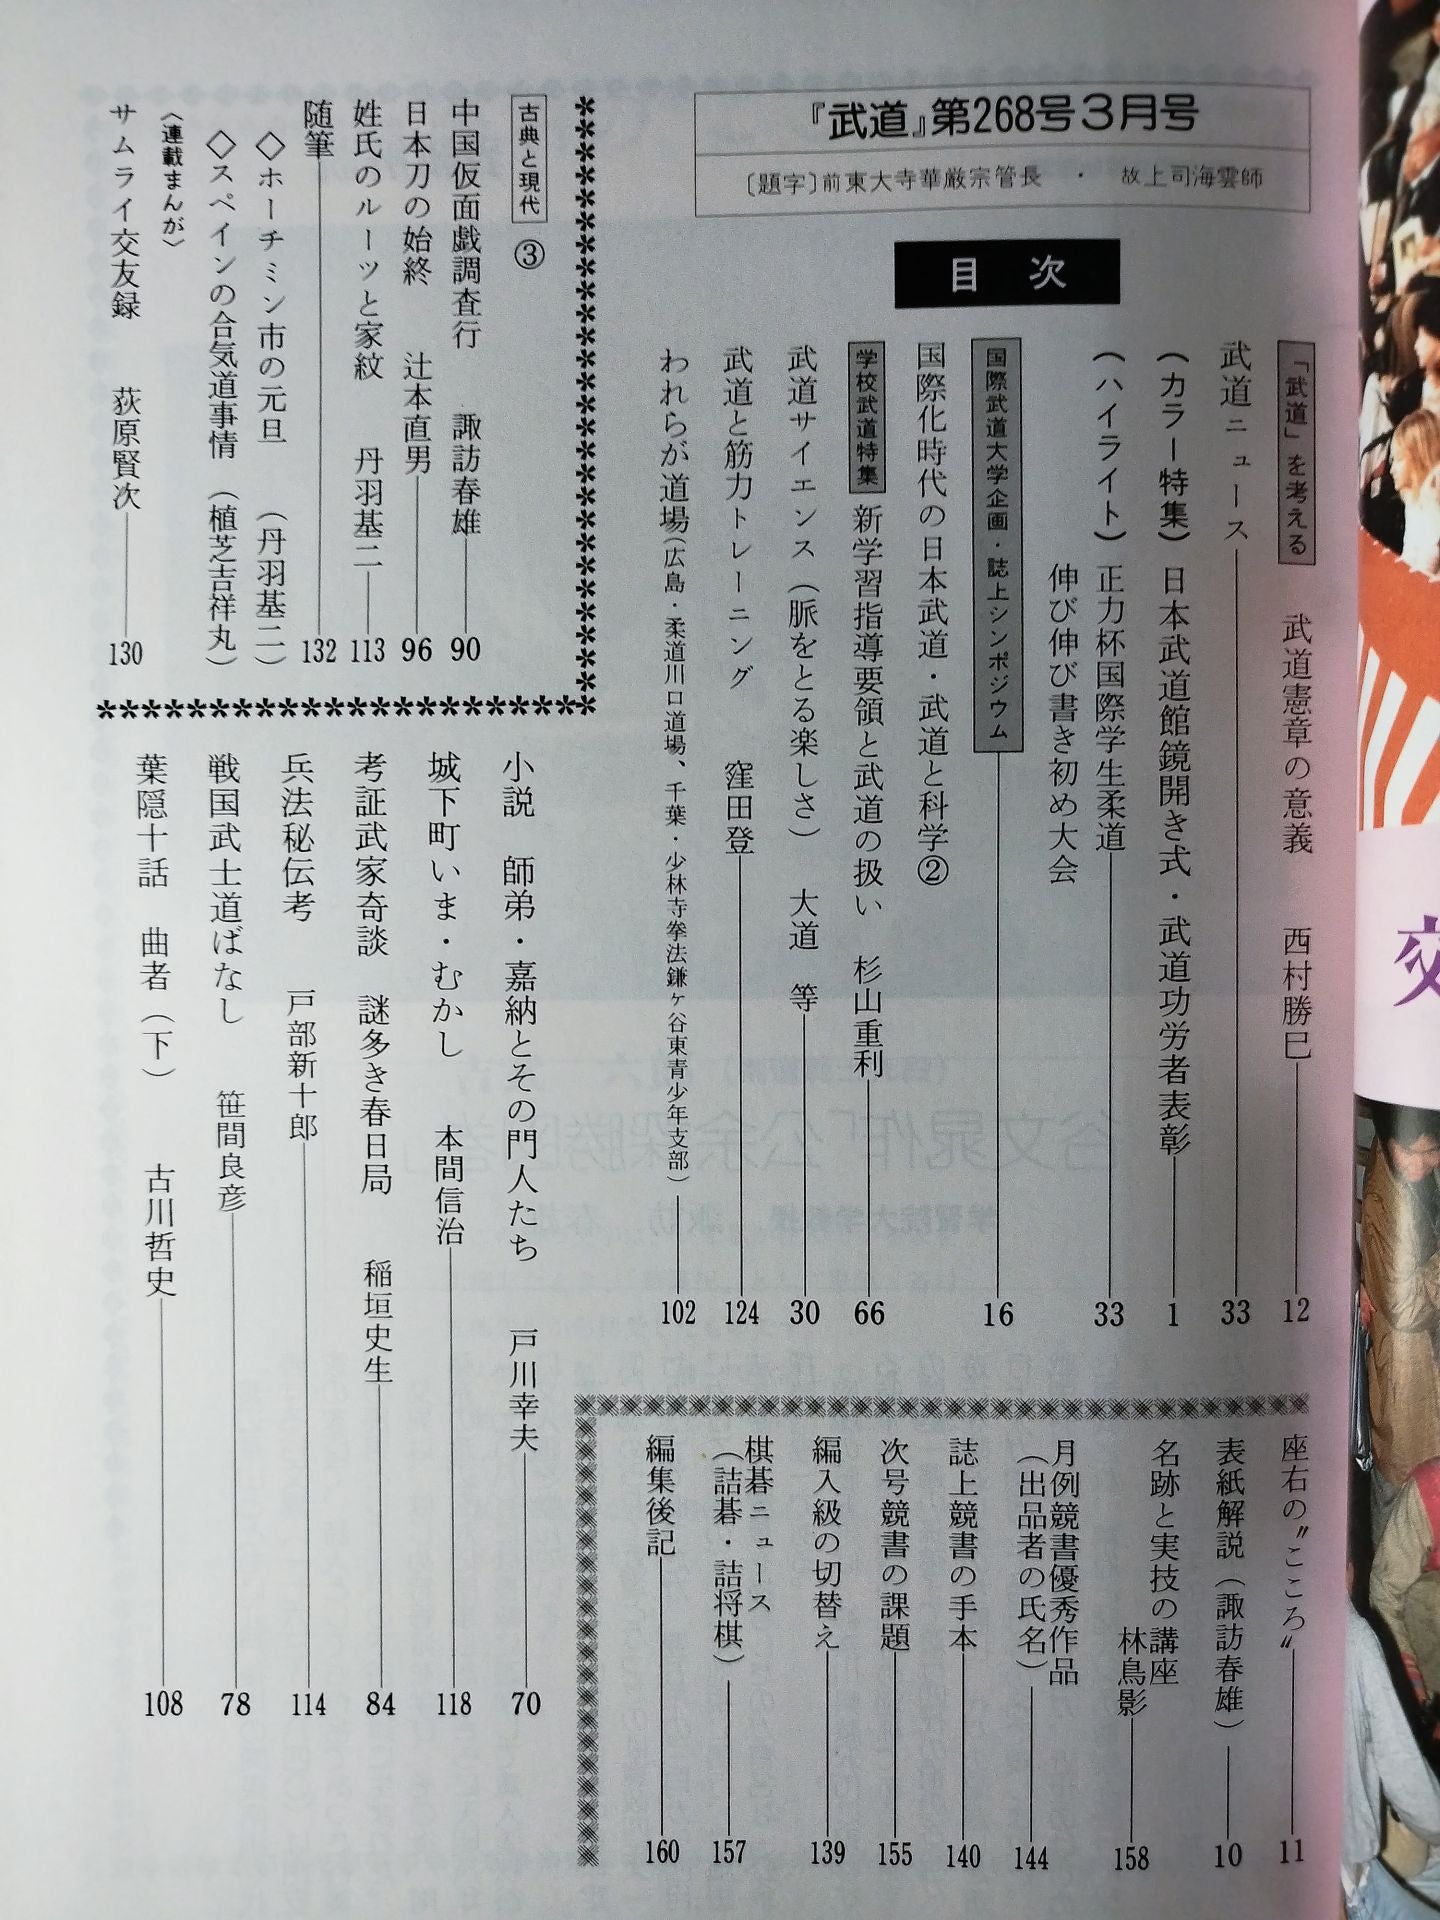 『武道』第268号3月号
〔題字〕前東大寺華厳宗管長・故上司海雲師
目次
「武道」を考える 武道憲章の意義 西村勝巳 12
武道ニュース 33
(カラー特集)日本武道館鏡開き式・武道功労者表彰 1
(ハイライト)正力杯国際学生柔道 33
伸び伸び書き初め大会
国際武道大学企画・誌上シンポジウム 16
国際化時代の日本武道・武道と科学②
学校武道特集 新学習指導要領と武道の扱い 杉山重利 66
武道サイエンス(脈をとる楽しさ) 大道 等 30
武道と筋力トレーニング 窪田登 124
われらが道場(広島・柔道川口道場、千葉・少林寺拳法鎌ヶ谷東青少年支部) 102
古典と現代 ③
中国仮面戯調査行 諏訪春雄 90
日本刀の始終 辻本直男 96
姓氏のルーツと家紋 丹羽基二 113
随筆 132
◇ホーチミン市の元旦 (丹羽基二)
◇スペインの合気道事情 (植芝吉祥丸)
〈連載まんが〉
サムライ交友録 荻原賢次 130
小説 師弟・嘉納とその門人たち 戸川幸夫 70
城下町いま・むかし 本間信治 118
考証武家奇談 謎多き春日局 稲垣史生 84
兵法秘伝考 戸部新十郎 114
戦国武士道ばなし 笹間良彦 78
葉隠十話 曲者(下) 古川哲史 108
座右の〝こころ〟 11
表紙解説(諏訪春雄) 10
名跡と実技の講座
林鳥影 158
月例競書優秀作品
(出品者の氏名) 144
誌上競書の手本 140
次号競書の課題 155
編入級の切替え 139
棋碁ニュース
(詰碁・詰将棋) 157
編集後記 160
交